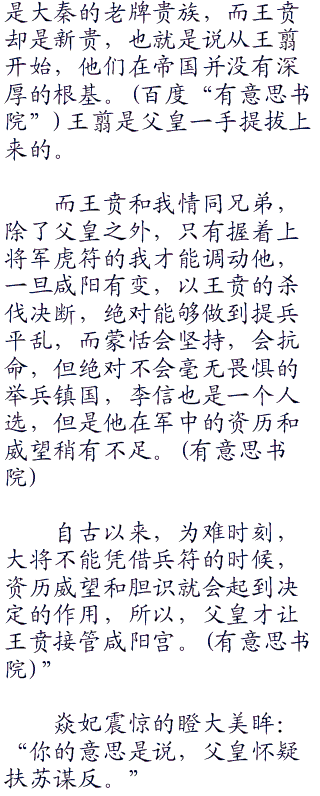 是大秦的老牌贵族，而王贲
却是新贵，也就是说从王翦
开始，他们在帝国并没有深
厚的根基。(百度“有意思书
院”)王翦是父皇一手提拔上
来的。
而王贲和我情同兄弟，
除了父皇之外，只有握着上
将军虎符的我才能调动他，
一旦咸阳有变，以王贲的杀
伐决断，绝对能够做到提兵
平乱，而蒙恬会坚持，会抗
命，但绝对不会毫无畏惧的
举兵镇国，李信也是一个人
选，但是他在军中的资历和
威望稍有不足。(有意思书
院)
自古以来，为难时刻，
大将不能凭借兵符的时候，
资历威望和胆识就会起到决
定的作用，所以，父皇才让
王贲接管咸阳宫。(有意思书
院)”
焱妃震惊的瞪大美眸：
“你的意思是说，父皇怀疑
扶苏谋反。”